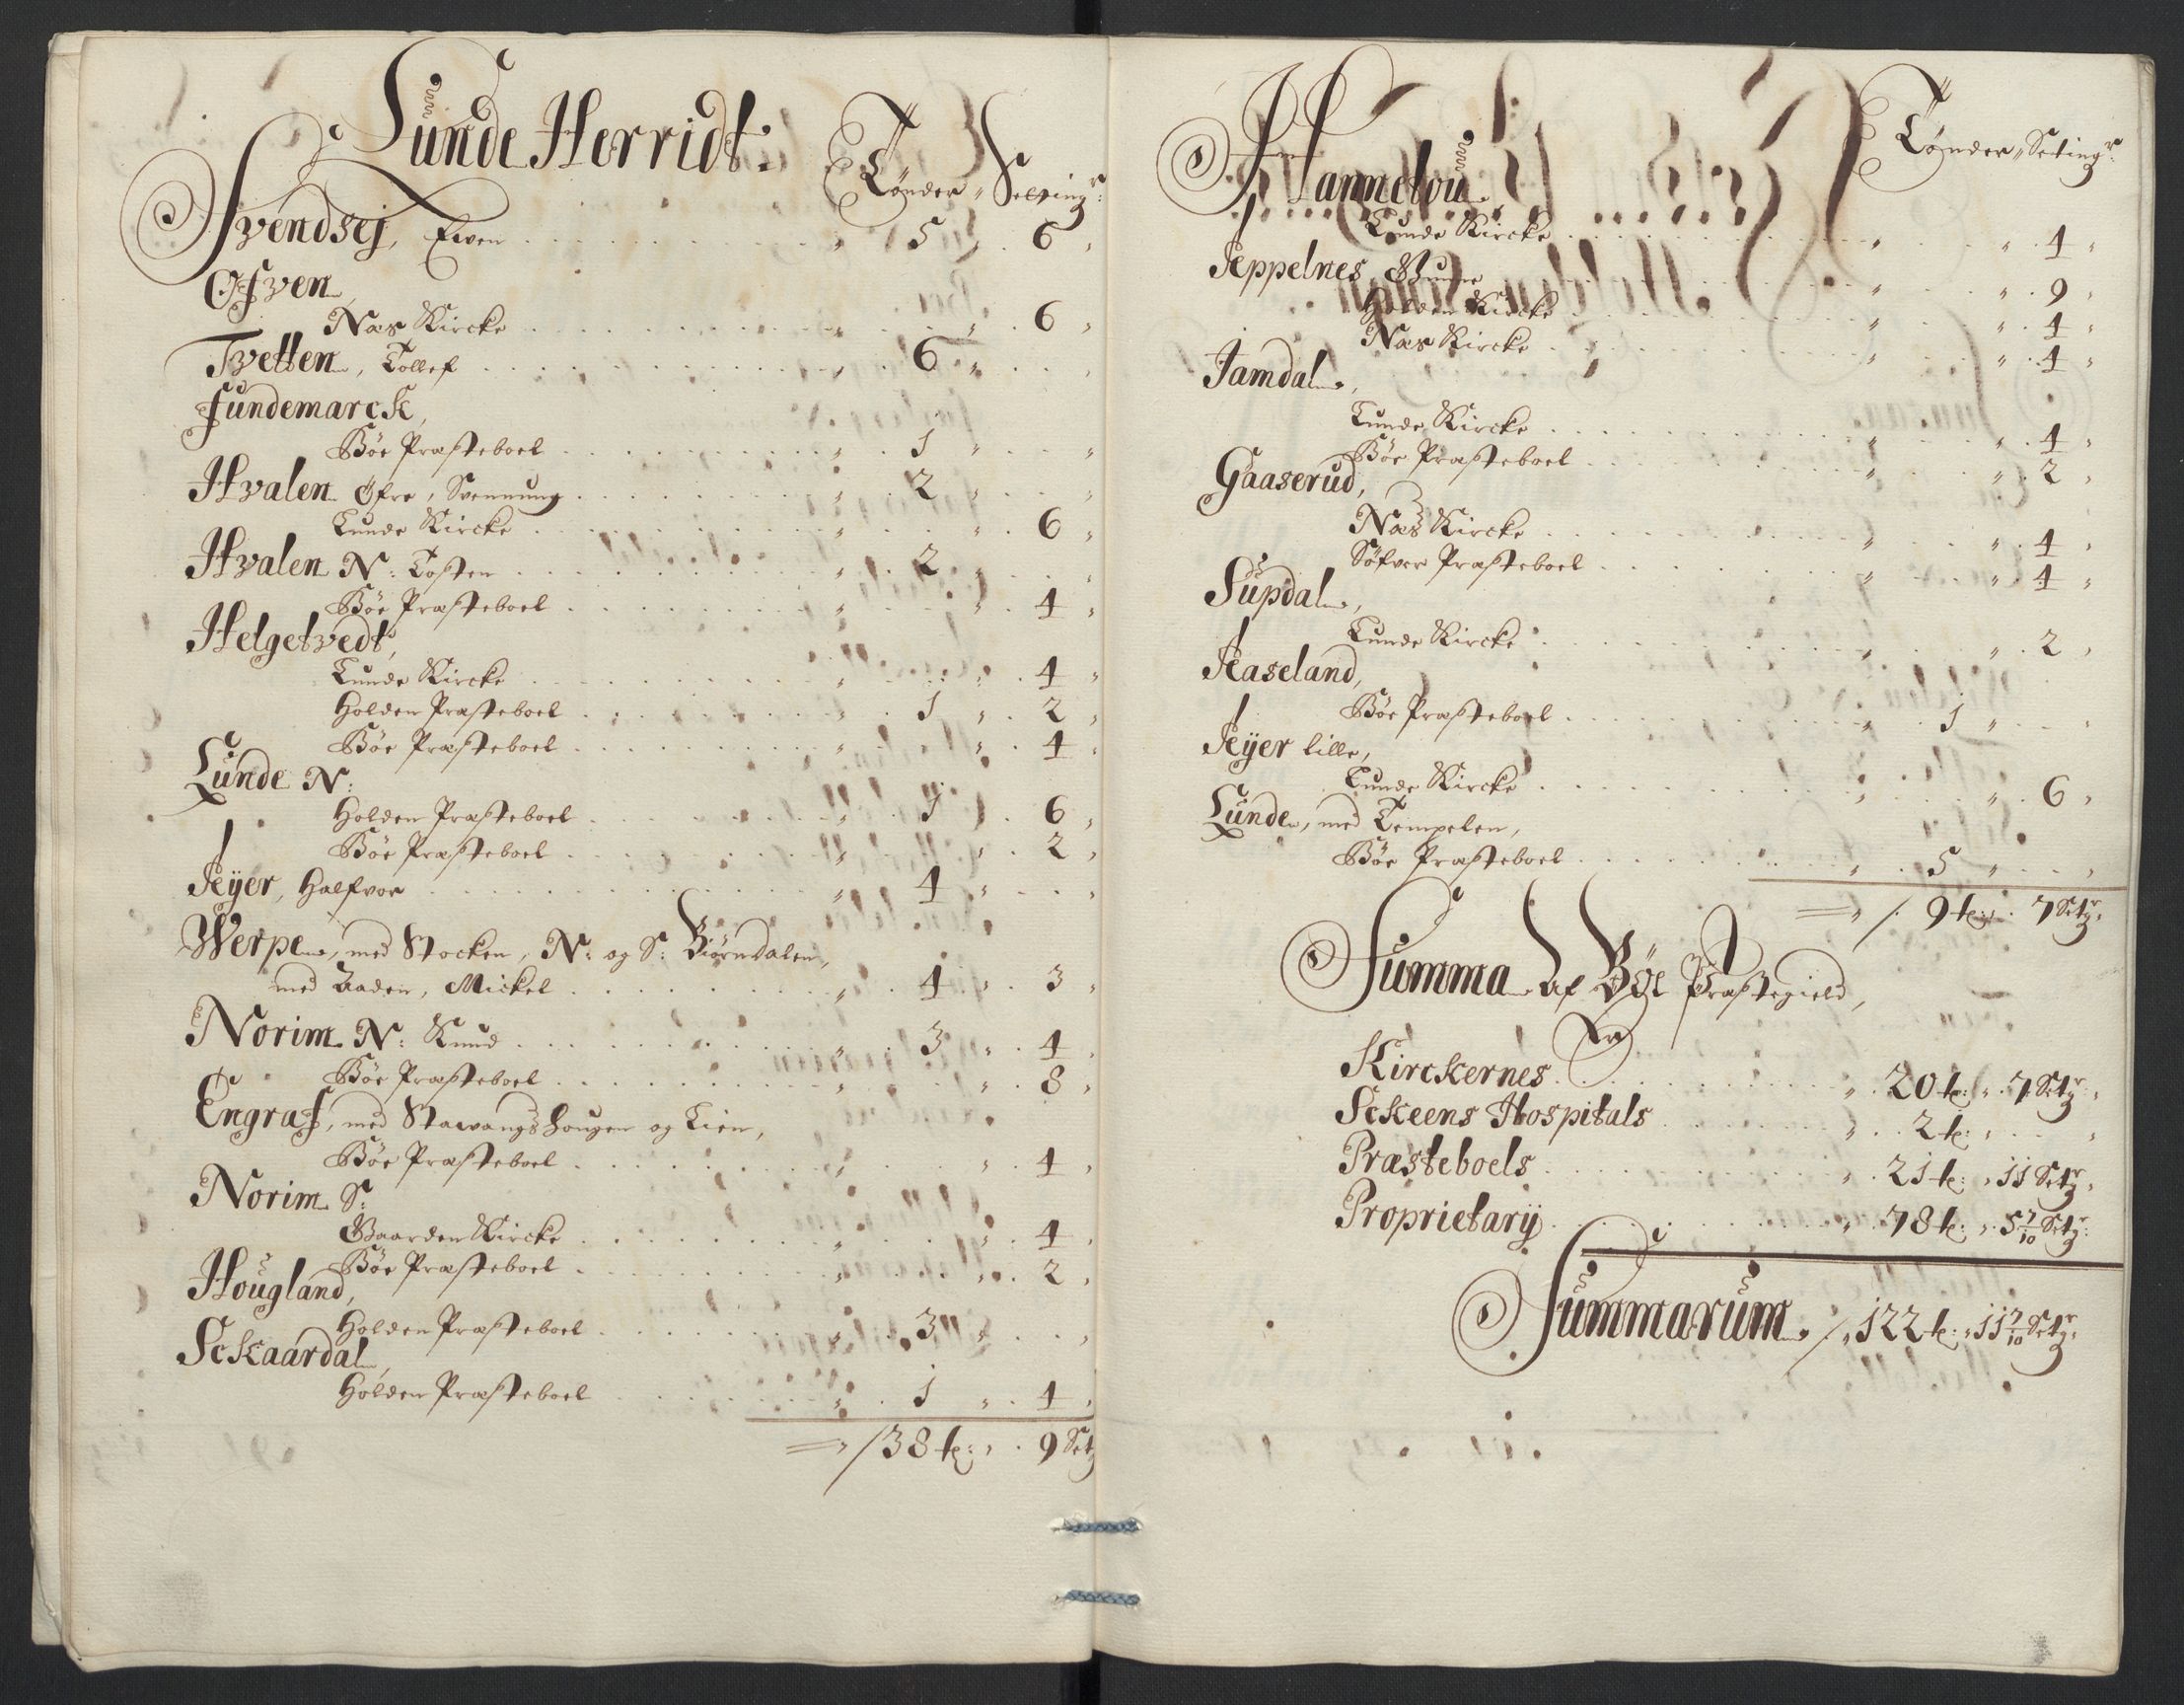 Lunde Herridt.
Tønder " Setting:
Svendsej, Even 5 . 6
Ofven
Næs Kircke 6
Tvetten, Tollef 6
Fundemarck,
Bøe Præsteboel 1
Hvalen Øfre, Svennung 2
Lunde Kircke 6
Hvalen N: Tosten 2
Bøe Præsteboel 4
Helgetvedt,
Lunde Kircke 4
Holden Præsteboel 1 . 2
Bøe Præsteboel 4
Lunde N:
Holden Præsteboel 1 . 6
Bøe Præsteboel 2
Jeÿer, Halfvor 4
Werpe, med Stocken, N: og S: Biørndalen,
med Aaden, Mickel 4 . 3
Norim N: Knud 3 . 4
Bøe Præsteboel 8
Engraf, med Stavangshougen og Lien,
Bøe Præsteboel 4
Norim S:
Gaarden Kircke 4
Bøe Præsteboel 2
Hougland,
Holden Præsteboel 3
Sckaardal,
Holden Præsteboel 1 . 4
/38 t: 9 Set
Tønder " Setingr:
Hannelou
Lunde Kircke 4
Jeppelnes,
9
Holden Kircke 4
Næs Kircke 4
Jamdal,
Lunde Kircke 4
Bøe Præsteboel 2
Gaaserud,
Næs Kircke 4
Præsteboel 4
Supdal,
Lunde Kircke 2
Aaseland,
Bøe Præsteboel 1
Jeÿer lille,
Lunde Kircke 6
Lunde, med Tempelen,
Bøe Præsteboel 5
/. 9 t: 7 Setr:
Summa af Bøe Præstegield,
Kirckernes 20 t: 7 Setr:
Sckeens Hospitals 2 t:
Præsteboels 21 t: 11 Setr:
Proprietarÿ 78 t: 5 7/10 Setr:
Summarum / 122 t: 11 7/10 Setr: